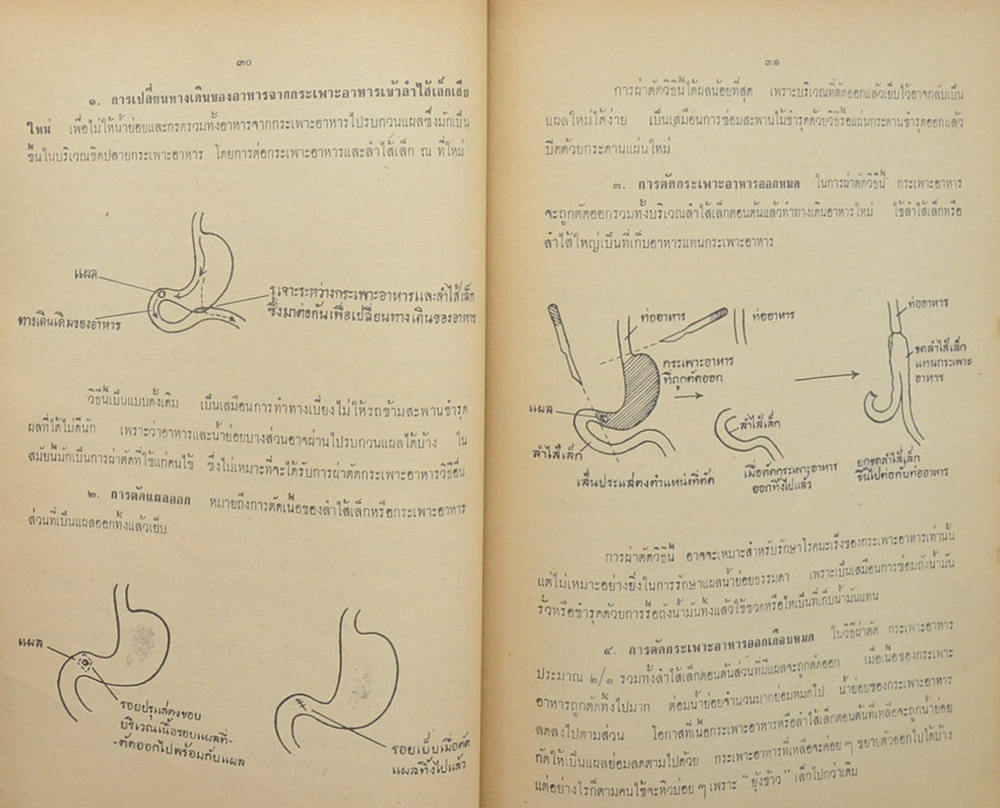 ๓๐
๑. การเปลี่ยนทางเดินของอาหารจากกระเพาะอาหารเข้าลำไส้เล็กเสีย
ใหม่ เพื่อไม่ให้น้ำย่อยและกรดรวมทั้งอาหารจากกระเพาะอาหารไปรบกวนแผลซึ่งมักเป็น
ขึ้นในบริเวณชิดปลายกระเพาะอาหาร โดยการต่อกระเพาะอาหารและลำไส้เล็ก ณ ที่ใหม่
แผล
ทางเดินเดิมของอาหาร
รูเจาะระหว่างกระเพาะอาหารและลำไส้เล็ก
ซึ่งมาต่อกันเพื่อเปลี่ยนทางเดินของอาหาร
วิธีนี้เป็นแบบดั้งเดิม เป็นเสมือนการทำทางเบี่ยงไม่ให้รถข้ามสะพานชำรุด
ผลที่ได้ไม่ดีนัก เพราะว่าอาหารและน้ำย่อยบางส่วนอาจผ่านไปรบกวนแผลได้บ้าง ใน
สมัยนี้มักเป็นการผ่าตัดที่ใช้แก่คนไข้ ซึ่งไม่เหมาะที่จะได้รับการผ่าตัดกระเพาะอาหารวิธีอื่น
๒. การตัดแผลออก หมายถึงการตัดเนื้อของลำไส้เล็กหรือกระเพาะอาหาร
ส่วนที่เป็นแผลออกทิ้งแล้วเย็บ
แผล
รอยปรุแสดงขอบ
บริเวณเนื้อรอบแผลที่-
-ตัดออกไปพร้อมกับแผล
รอยเย็บเมื่อตัด
แผลทิ้งไปแล้ว
๓๑
การผ่าตัดวิธีนี้ได้ผลน้อยที่สุด เพราะบริเวณที่ตัดออกแล้วเย็บไว้อาจกลับเป็น
แผลใหม่ได้ง่าย เป็นเสมือนการซ่อมสะพานไม้ชำรุดด้วยวิธีรื้อแผ่นกระดานชำรุดออกแล้ว
ปิดด้วยกระดานแผ่นใหม่
๓. การตัดกระเพาะอาหารออกหมด ในการผ่าตัดวิธีนี้ กระเพาะอาหาร
จะถูกตัดออกรวมทั้งบริเวณลำไส้เล็กตอนต้นแล้วทำทางเดินอาหารใหม่ ใช้ลำไส้เล็กหรือ
ลำไส้ใหญ่เป็นที่เก็บอาหารแทนกระเพาะอาหาร
ท่ออาหาร
กระเพาะอาหาร
ที่ถูกตัดออก
แผล
ลำไส้เล็ก
เส้นประแสดงตำแหน่งที่ตัด
ท่ออาหาร
ลำไส้เล็ก
เมื่อตัดกระเพาะอาหาร
ออกทิ้งไปแล้ว
ท่ออาหาร
ขดลำไส้เล็ก
แทนกระเพาะ
อาหาร
ยกขดลำไส้เล็ก
ขึ้นไปต่อกับท่ออาหาร
การผ่าตัดวิธีนี้ อาจจะเหมาะสำหรับรักษาโรคมะเร็งของกระเพาะอาหารเท่านั้น
แต่ไม่เหมาะอย่างยิ่งในการรักษาแผลน้ำย่อยธรรมดา เพราะเป็นเสมือนการซ่อมถังน้ำมัน
รั่วหรือชำรุดด้วยการรื้อถังน้ำมันทิ้งแล้วใช้ขวดหรือไหเป็นที่เก็บน้ำมันแทน
๔. การตัดกระเพาะอาหารออกเกือบหมด ในวิธีผ่าตัด กระเพาะอาหาร
ประมาณ ๒/๓ รวมทั้งลำไส้เล็กตอนต้นส่วนที่มีแผลจะถูกตัดออก เมื่อเนื้อของกระเพาะ
อาหารถูกตัดทิ้งไปมาก ต่อมน้ำย่อยจำนวนมากย่อมหมดไป น้ำย่อยของกระเพาะอาหาร
ลดลงไปตามส่วน โอกาสที่เนื้อกระเพาะอาหารหรือลำไส้เล็กตอนต้นที่เหลือจะถูกน้ำย่อย
กัดให้เป็นแผลย่อมลดตามไปด้วย กระเพาะอาหารที่เหลือจะค่อย ๆ ขยายตัวออกไปได้บ้าง
แต่อย่างไรก็ตามคนไข้จะหิวบ่อย ๆ เพราะ "ยุ้งข้าว" เล็กไปกว่าเดิม